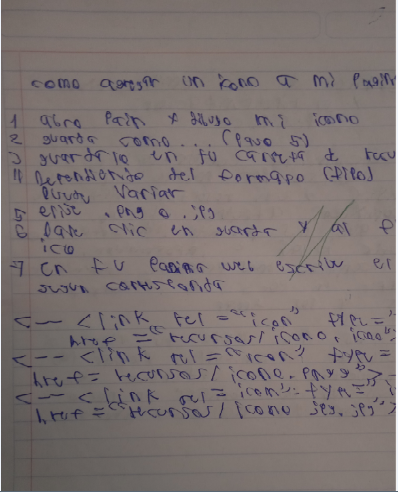 como agregar un icono a mi Pagin
1 abro Pain y dibujo mi icono
2 guarda como... (Paso 5)
3 guardalo en tu carpeta de recu
4 Dependiendo del formapo (tipo)
Puede variar
5 elije .png o .jpg
6 Dale clic en guarda y al f
ico
7 En tu Pagina web escribe el
segun corresponda
<-- <link rel="icon" type="
href="recursos/icono.ico"
<-- <link rel="icon" type=
href=recursos/icono.png">
<-- <link rel=icon": type="i
href="recursos/icono jpg.jpg">